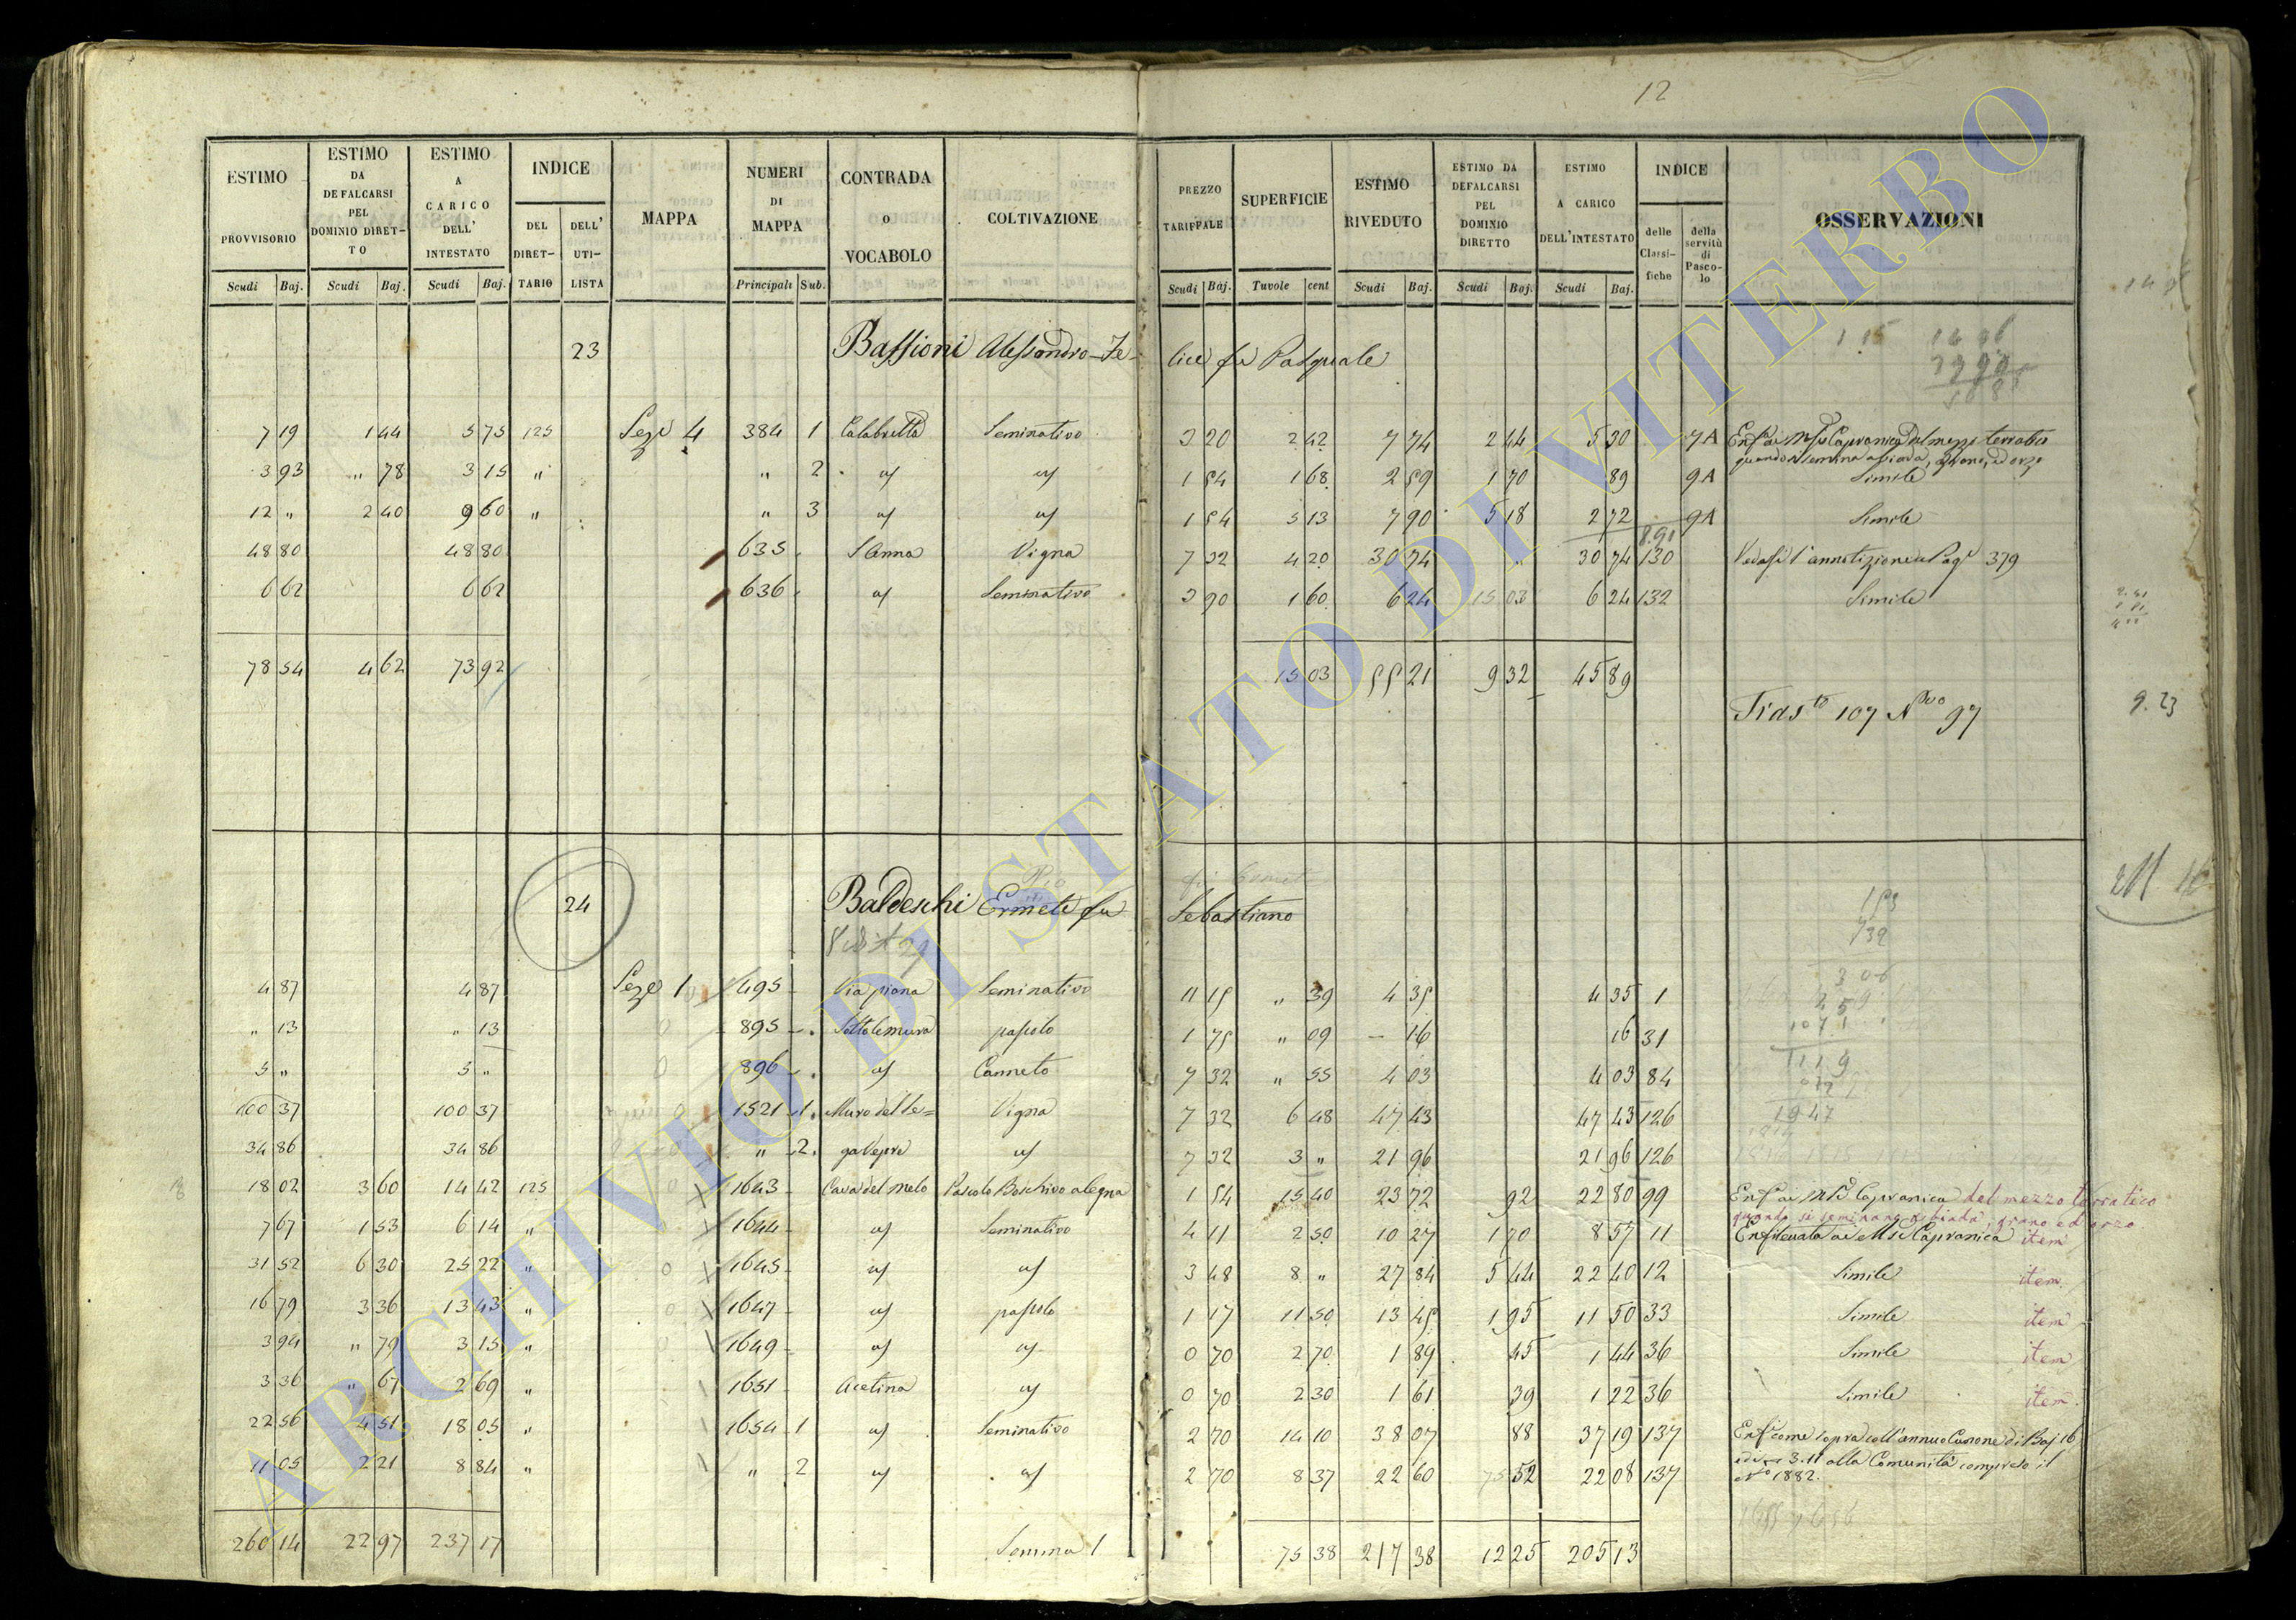 12
ESTIMO PROVVISORIO Scudi Baj. | ESTIMO DA DEFALCARSI PEL DOMINIO DIRET-TO Scudi Baj. | ESTIMO A CARICO DELL' INTESTATO Scudi Baj. | INDICE DEL DIRET-TARIO | DELL' UTI-LISTA | MAPPA | NUMERI DI MAPPA Principali Sub. | CONTRADA O VOCABOLO | COLTIVAZIONE | PREZZO TARIFFALE Scudi Baj. | SUPERFICIE Tavole cent | ESTIMO RIVEDUTO Scudi Baj. | ESTIMO DA DEFALCARSI PEL DOMINIO DIRETTO Scudi Baj. | ESTIMO A CARICO DELL'INTESTATO Scudi Baj. | INDICE delle Classi-fiche | della servitù di Pasco-lo | OSSERVAZIONI
23 Bassioni Alessandro-Fe- lice fu Pasquale
7 19 | 1 44 | 5 75 | 125 | Seze 4 | 384 | 1 | Calabretta | Seminativo | 3 20 | 2 42 | 7 74 | 2 44 | 5 30 | 7A | Capranica del mezzo terratico
quando si semina a biada, grano, ed orzo
3 93 | " 78 | 3 15 | " | " | 2 | " 1 54 | 1 68 | 2 59 | 1 70 | 89 | 9A | Simile
12 " | 2 40 | 9 60 | " | " | 3 | 1 54 | 5 13 | 7 90 | 5 18 | 2 72 | 9A | Simile
8.91
48 80 | 48 80 | 635 | S Anna | Vigna | 7 32 | 4 20 | 30 74 | 30 74 | 130 | Vedasi l'annotizione a Pag 379
6 62 | 6 62 | 636 | Seminativo | 3 90 | 1 60 | 6 24 | 15 03 | 6 24 | 132 | Simile
78 54 | 4 62 | 73 92 | 15 03 | 55 21 | 9 32 | 45 89
107 97
9.23
24 Baldeschi Ermete fu Sebastiano
Pio
4 87 | 4 87 | Seze 1 | 495 | Via piana | Seminativo | 11 15 | " 39 | 4 35 | 4 35 | 1
" 13 | " 13 | 895 | Sotto le mura | pascolo | 1 75 | " 09 | – 16 | 16 | 31
5 " | 5 " | 896 | Canneto | 7 32 | " 55 | 4 03 | 4 03 | 84
100 37 | 100 37 | 1521 | 1 | Muro del Le= | Vigna | 7 32 | 6 48 | 47 43 | 47 43 | 126
34 86 | 34 86 | " | 2 | ga Vepre | 7 32 | 3 " | 21 96 | 21 96 | 126
18 02 | 3 60 | 14 42 | 125 | 1643 | Cava del Melo | Pascolo Boschivo a legna | 1 54 | 15 40 | 23 72 | 92 | 22 80 | 99 | Capranica del mezzo terratico
quando si seminano a biada, grano ed orzo
7 67 | 1 53 | 6 14 | " | 1644 | Seminativo | 4 11 | 2 50 | 10 27 | 1 70 | 8 57 | 11 | Enfiteuta ai Capranica item
31 52 | 6 30 | 25 22 | " | 1645 | 3 48 | 8 " | 27 84 | 5 44 | 22 40 | 12 | Simile item
16 79 | 3 36 | 13 43 | " | 1647 | pascolo | 1 17 | 11 50 | 13 45 | 1 95 | 11 50 | 33 | Simile item
3 94 | " 79 | 3 15 | " | 1649 | 0 70 | 2 70 | 1 89 | 45 | 1 44 | 36 | Simile item
3 36 | " 67 | 2 69 | " | 1651 | Acetina | 0 70 | 2 30 | 1 61 | 39 | 1 22 | 36 | Simile item
22 56 | 4 51 | 18 05 | " | 1654 | 1 | Seminativo | 2 70 | 14 10 | 38 07 | 88 | 37 19 | 137 | come sopra coll'annuo Canone di Baj 16
11 05 | 2 21 | 8 84 | " | " | 2 | 2 70 | 8 37 | 22 60 | 52 | 22 08 | 137 | 3.11 alla Comunità compreso il
1882.
260 14 | 22 97 | 237 17 | Somma 1 | 75 38 | 217 38 | 12 25 | 205 13
ARCHIVIO DI STATO DI VITERBO